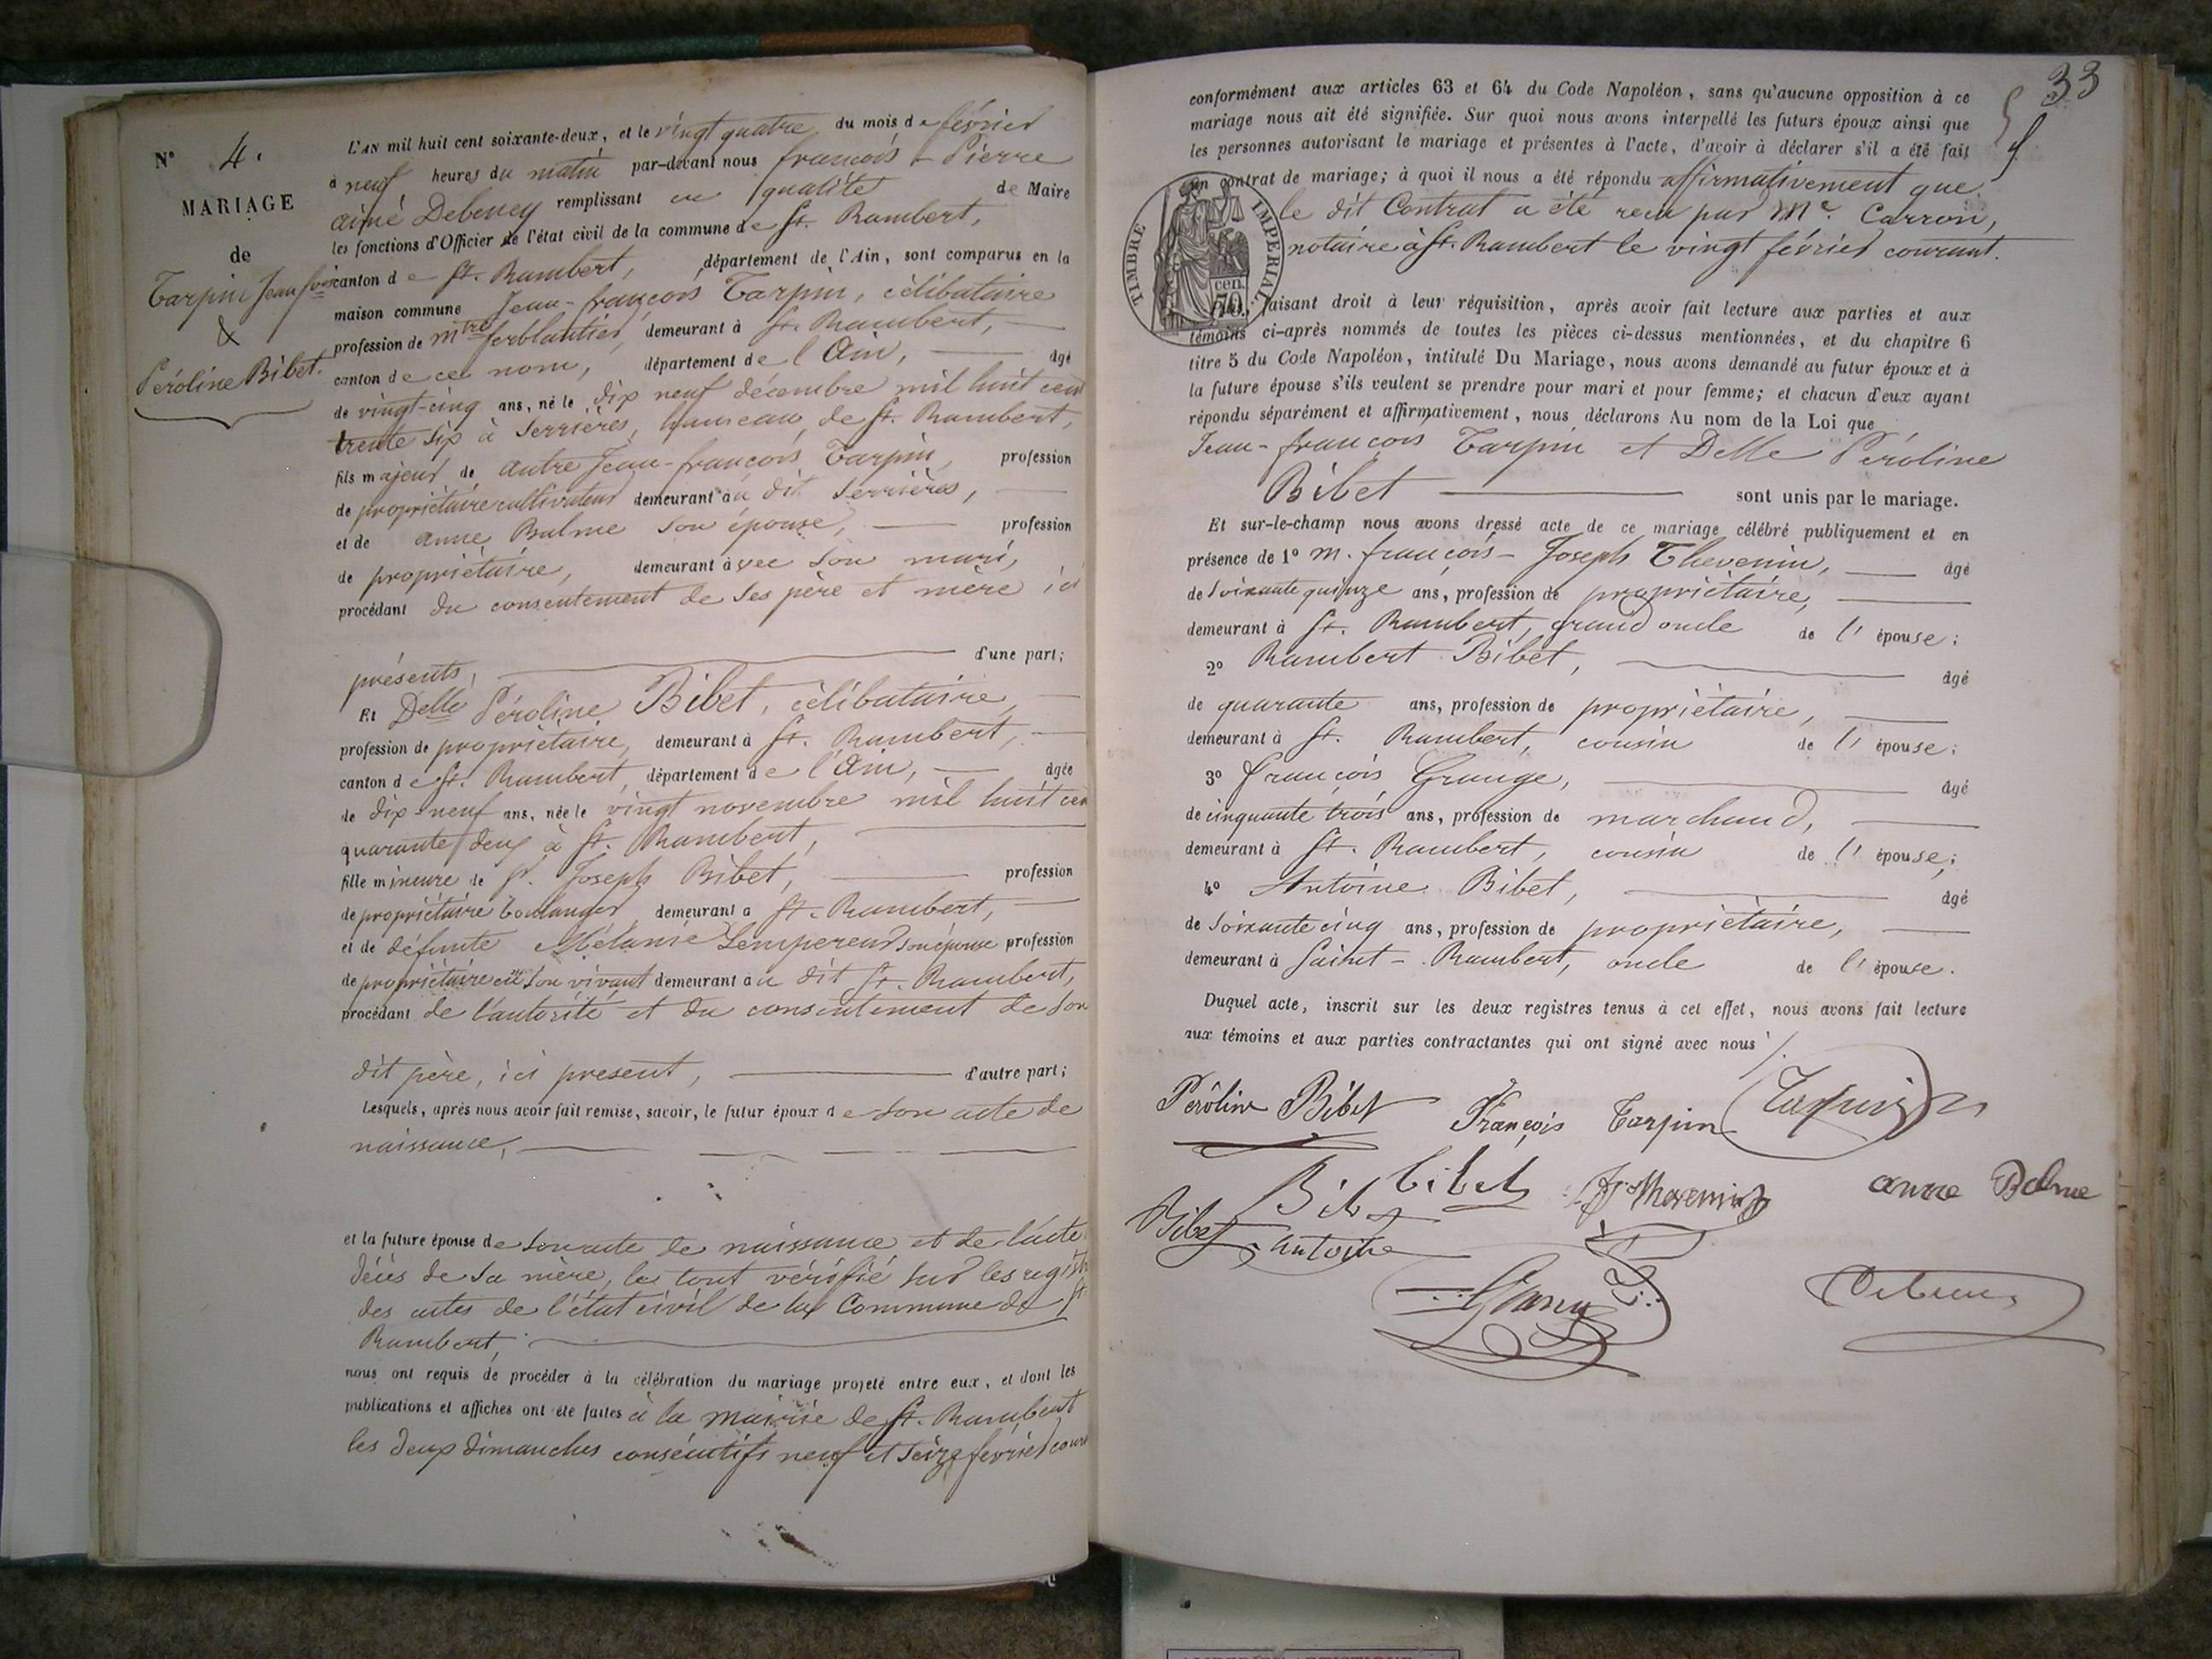 N° 4.
MARIAGE
de
Tarpin Jean fois
&
Péroline Bibet.
L'AN mil huit cent soixante-deux, et le vingt quatre du mois de février
à neuf heures du matin par-devant nous françois-Pierre
aimé Debeney remplissant en qualité de Maire
les fonctions d'Officier de l'état civil de la commune de St. Rambert,
canton de St. Rambert, département de l'Ain, sont comparus en la
maison commune Jean-françois Tarpin, célibataire
profession de mtre ferblantier, demeurant à St. Rambert,
canton de ce nom, département de l'Ain, âgé
de vingt-cinq ans, né le dix neuf décembre mil huit cent
trente six à Serrières, hameau de St. Rambert,
fils majeur de autre Jean-françois Tarpin, profession
de propriétaire cultivateur demeurant au dit Serrières,
et de anne Balme son épouse, profession
de propriétaire, demeurant avec son mari,
procédant du consentement de ses père et mère ici
présents, d'une part;
Et Delle Péroline Bibet, célibataire
profession de propriétaire, demeurant à St. Rambert,
canton de St. Rambert, département de l'Ain, âgée
de dix-neuf ans, née le vingt novembre mil huit cen
quarante deux à St. Rambert,
fille mineure de Sr. Joseph Bibet, profession
de propriétaire boulanger, demeurant à St. Rambert,
et de défunte Mélanie Lempereur son épouse profession
de propriétaire en son vivant demeurant au dit St. Rambert,
procédant de l'autorité et du consentement de son
dit père, ici present, d'autre part;
Lesquels, après nous avoir fait remise, savoir, le futur époux de son acte de
naissance,
et la future épouse de son acte de naissance et de l'acte
décès de sa mère, le tout vérifié sur les regist
des actes de l'état civil de la Commune de St
Rambert,
nous ont requis de procéder à la célébration du mariage projeté entre eux, et dont les
publications et affiches ont été faites à la mairie de St. Rambert
les deux dimanches consécutifs neuf et seize février cour
33
conformément aux articles 63 et 64 du Code Napoléon, sans qu'aucune opposition à ce
mariage nous ait été signifiée. Sur quoi nous avons interpellé les futurs époux ainsi que
les personnes autorisant le mariage et présentes à l'acte, d'avoir à déclarer s'il a été fait
un contrat de mariage; à quoi il nous a été répondu affirmativement que
le dit Contrat a été recu par Me. Carron,
notaire à St. Rambert le vingt février courant.
TIMBRE IMPERIAL
70 cen.
faisant droit à leur réquisition, après avoir fait lecture aux parties et aux
témoins ci-après nommés de toutes les pièces ci-dessus mentionnées, et du chapitre 6
titre 5 du Code Napoléon, intitulé Du Mariage, nous avons demandé au futur époux et à
la future épouse s'ils veulent se prendre pour mari et pour femme; et chacun d'eux ayant
répondu séparément et affirmativement, nous déclarons Au nom de la Loi que
Jean-françois Tarpin et Delle Péroline
Bibet sont unis par le mariage.
Et sur-le-champ nous avons dressé acte de ce mariage célébré publiquement et en
présence de 1° m. françois-Joseph Thevenin, âgé
de soixante quinze ans, profession de propriétaire,
demeurant à St. Rambert, grand oncle de l'épouse;
2° Rambert Bibet, âgé
de quarante ans, profession de propriétaire,
demeurant à St. Rambert, cousin de l'épouse;
3° françois Grange, âgé
de cinquante trois ans, profession de marchand,
demeurant à St. Rambert, cousin de l'épouse;
4° Antoine Bibet, âgé
de soixante cinq ans, profession de propriétaire,
demeurant à Saint-Rambert, oncle de l'épouse.
Duquel acte, inscrit sur les deux registres tenus à cet effet, nous avons fait lecture
aux témoins et aux parties contractantes qui ont signé avec nous
Pérôline Bibet François Tarpin Tarpin
Bibet bibet fs thevenin anne Balme
Bibet antoine
Debeney